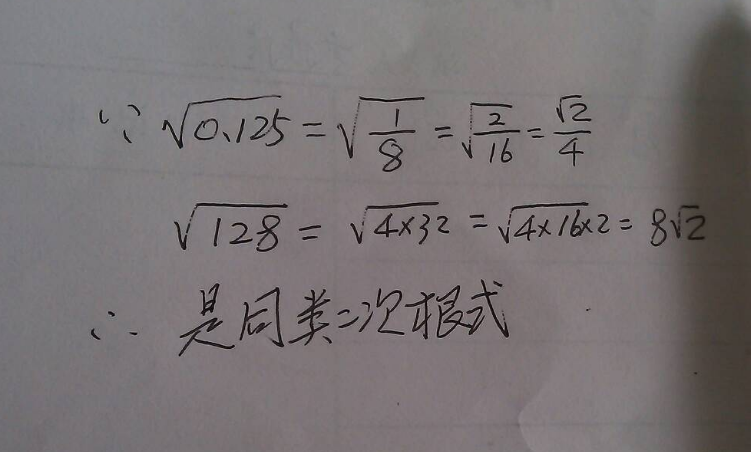 ∵ √0.125 = √(1/8) = √(2/16) = √2/4
√128 = √(4×32) = √(4×16×2) = 8√2
∴ 是同类二次根式